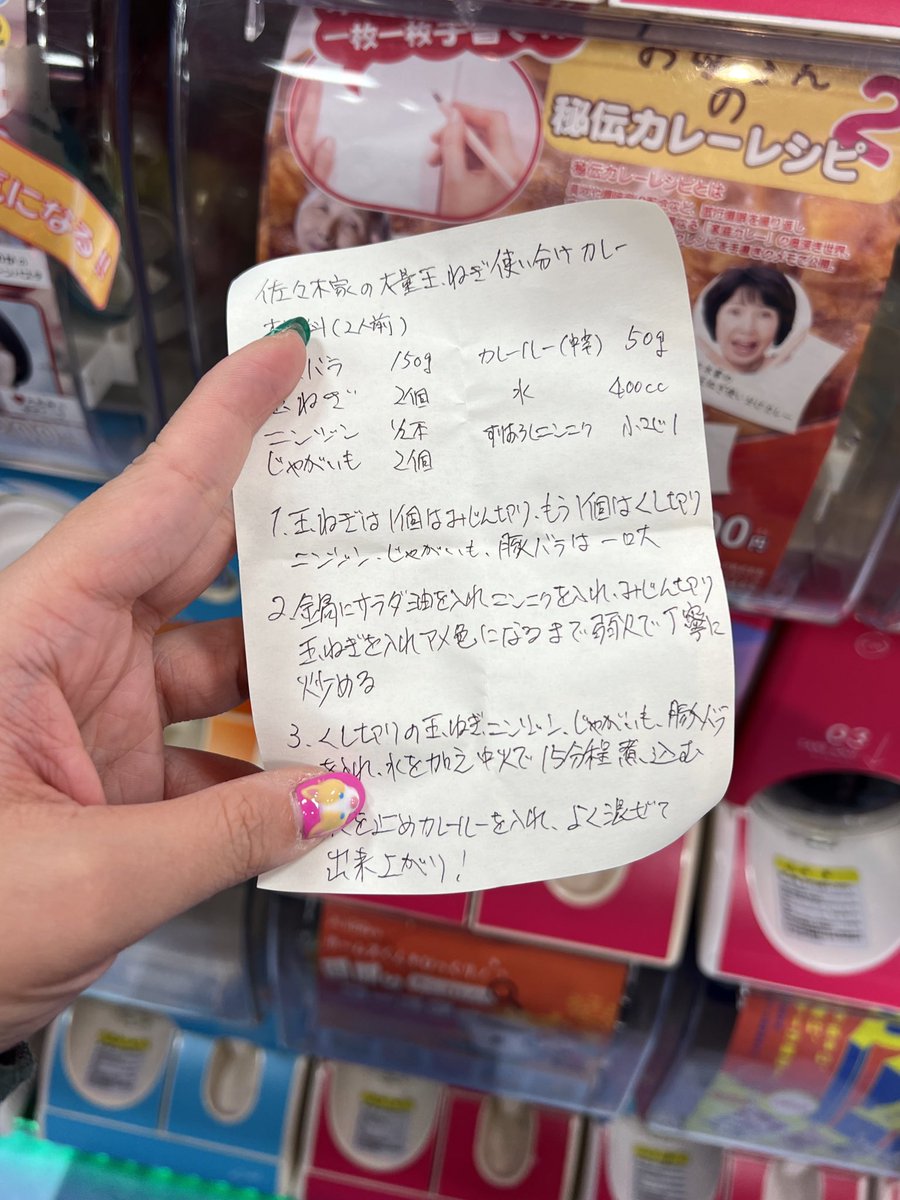 一枚一枚手書き
お母さん
の
秘伝カレーレシピ
2
秘伝カレーレシピとは
になる!!
佐々木家の大量玉ねぎ使い分けカレー
料(2人前)
バラ 150g カレールー(中辛) 50g
玉ねぎ 2個 水 400cc
ニンジン 1/2本 すりおろしニンニク 小さじ1
じゃがいも 2個
1. 玉ねぎは1個はみじん切り、もう1個はくし切り
ニンジン、じゃがいも、豚バラは一口大
2. 鍋にサラダ油を入れニンニクを入れ、みじん切り
玉ねぎを入れアメ色になるまで弱火で丁寧に
炒める
3. くし切りの玉ねぎ、ニンジン、じゃがいも、豚バラ
を入れ、水を加え中火で15分程煮込む
を止めカレールーを入れ、よく混ぜて
出来上がり!
00円
03